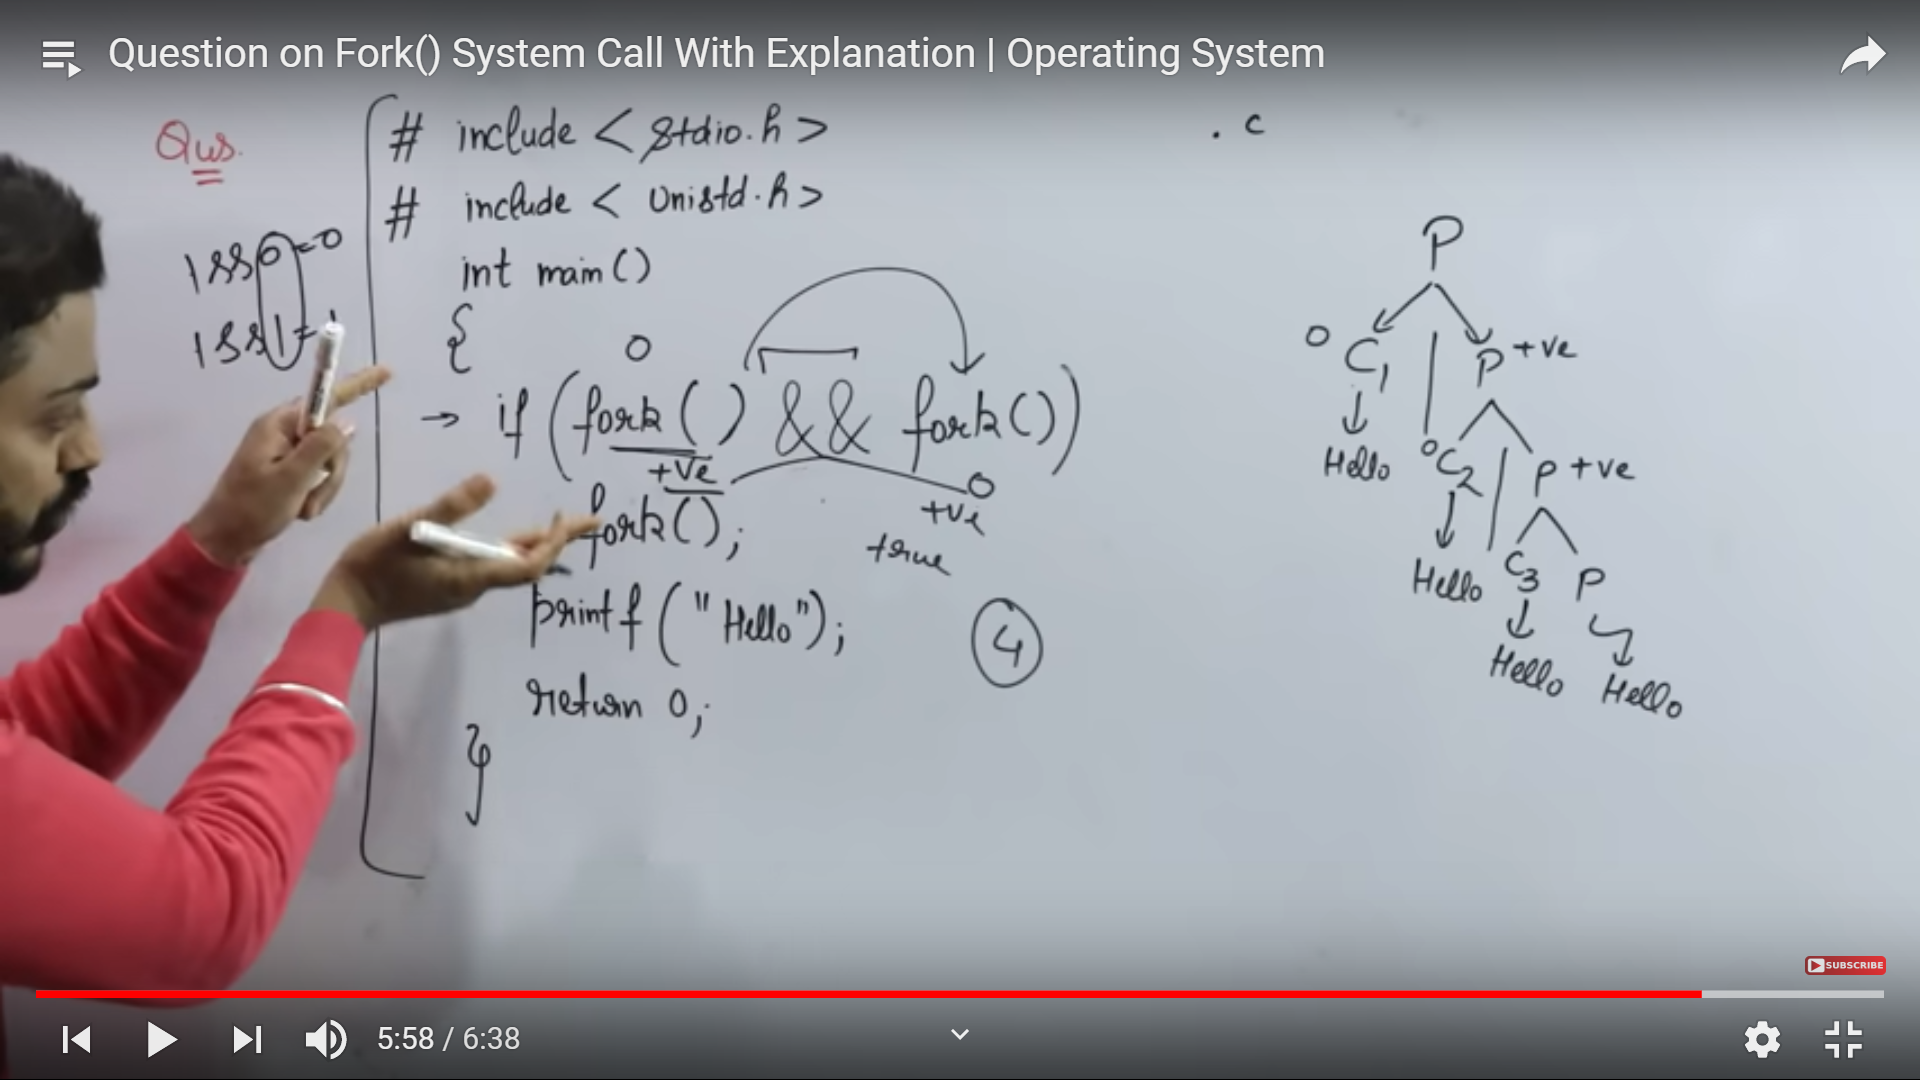 Question on Fork() System Call With Explanation | Operating System
Qus.
# include <stdio.h>
# include < unistd.h>
int main()
{
0
→ if (fork() && fork())
+ve
0
+ve
true
fork();
printf("Hello");
return 0;
}
4
. c
P
0 C1
P +ve
Hello
0 C2
P +ve
Hello
C3
P
Hello
Hello
SUBSCRIBE
5:58 / 6:38